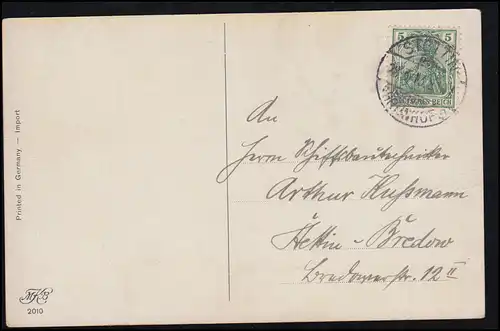 5 5
STETTIN
DEUTSCHES REICH
An
Herrn Schiffsbautechniker
Arthur Kussmann
Stettin-Bredow
Bredowerstr. 12 II
Printed in Germany — Import
2010